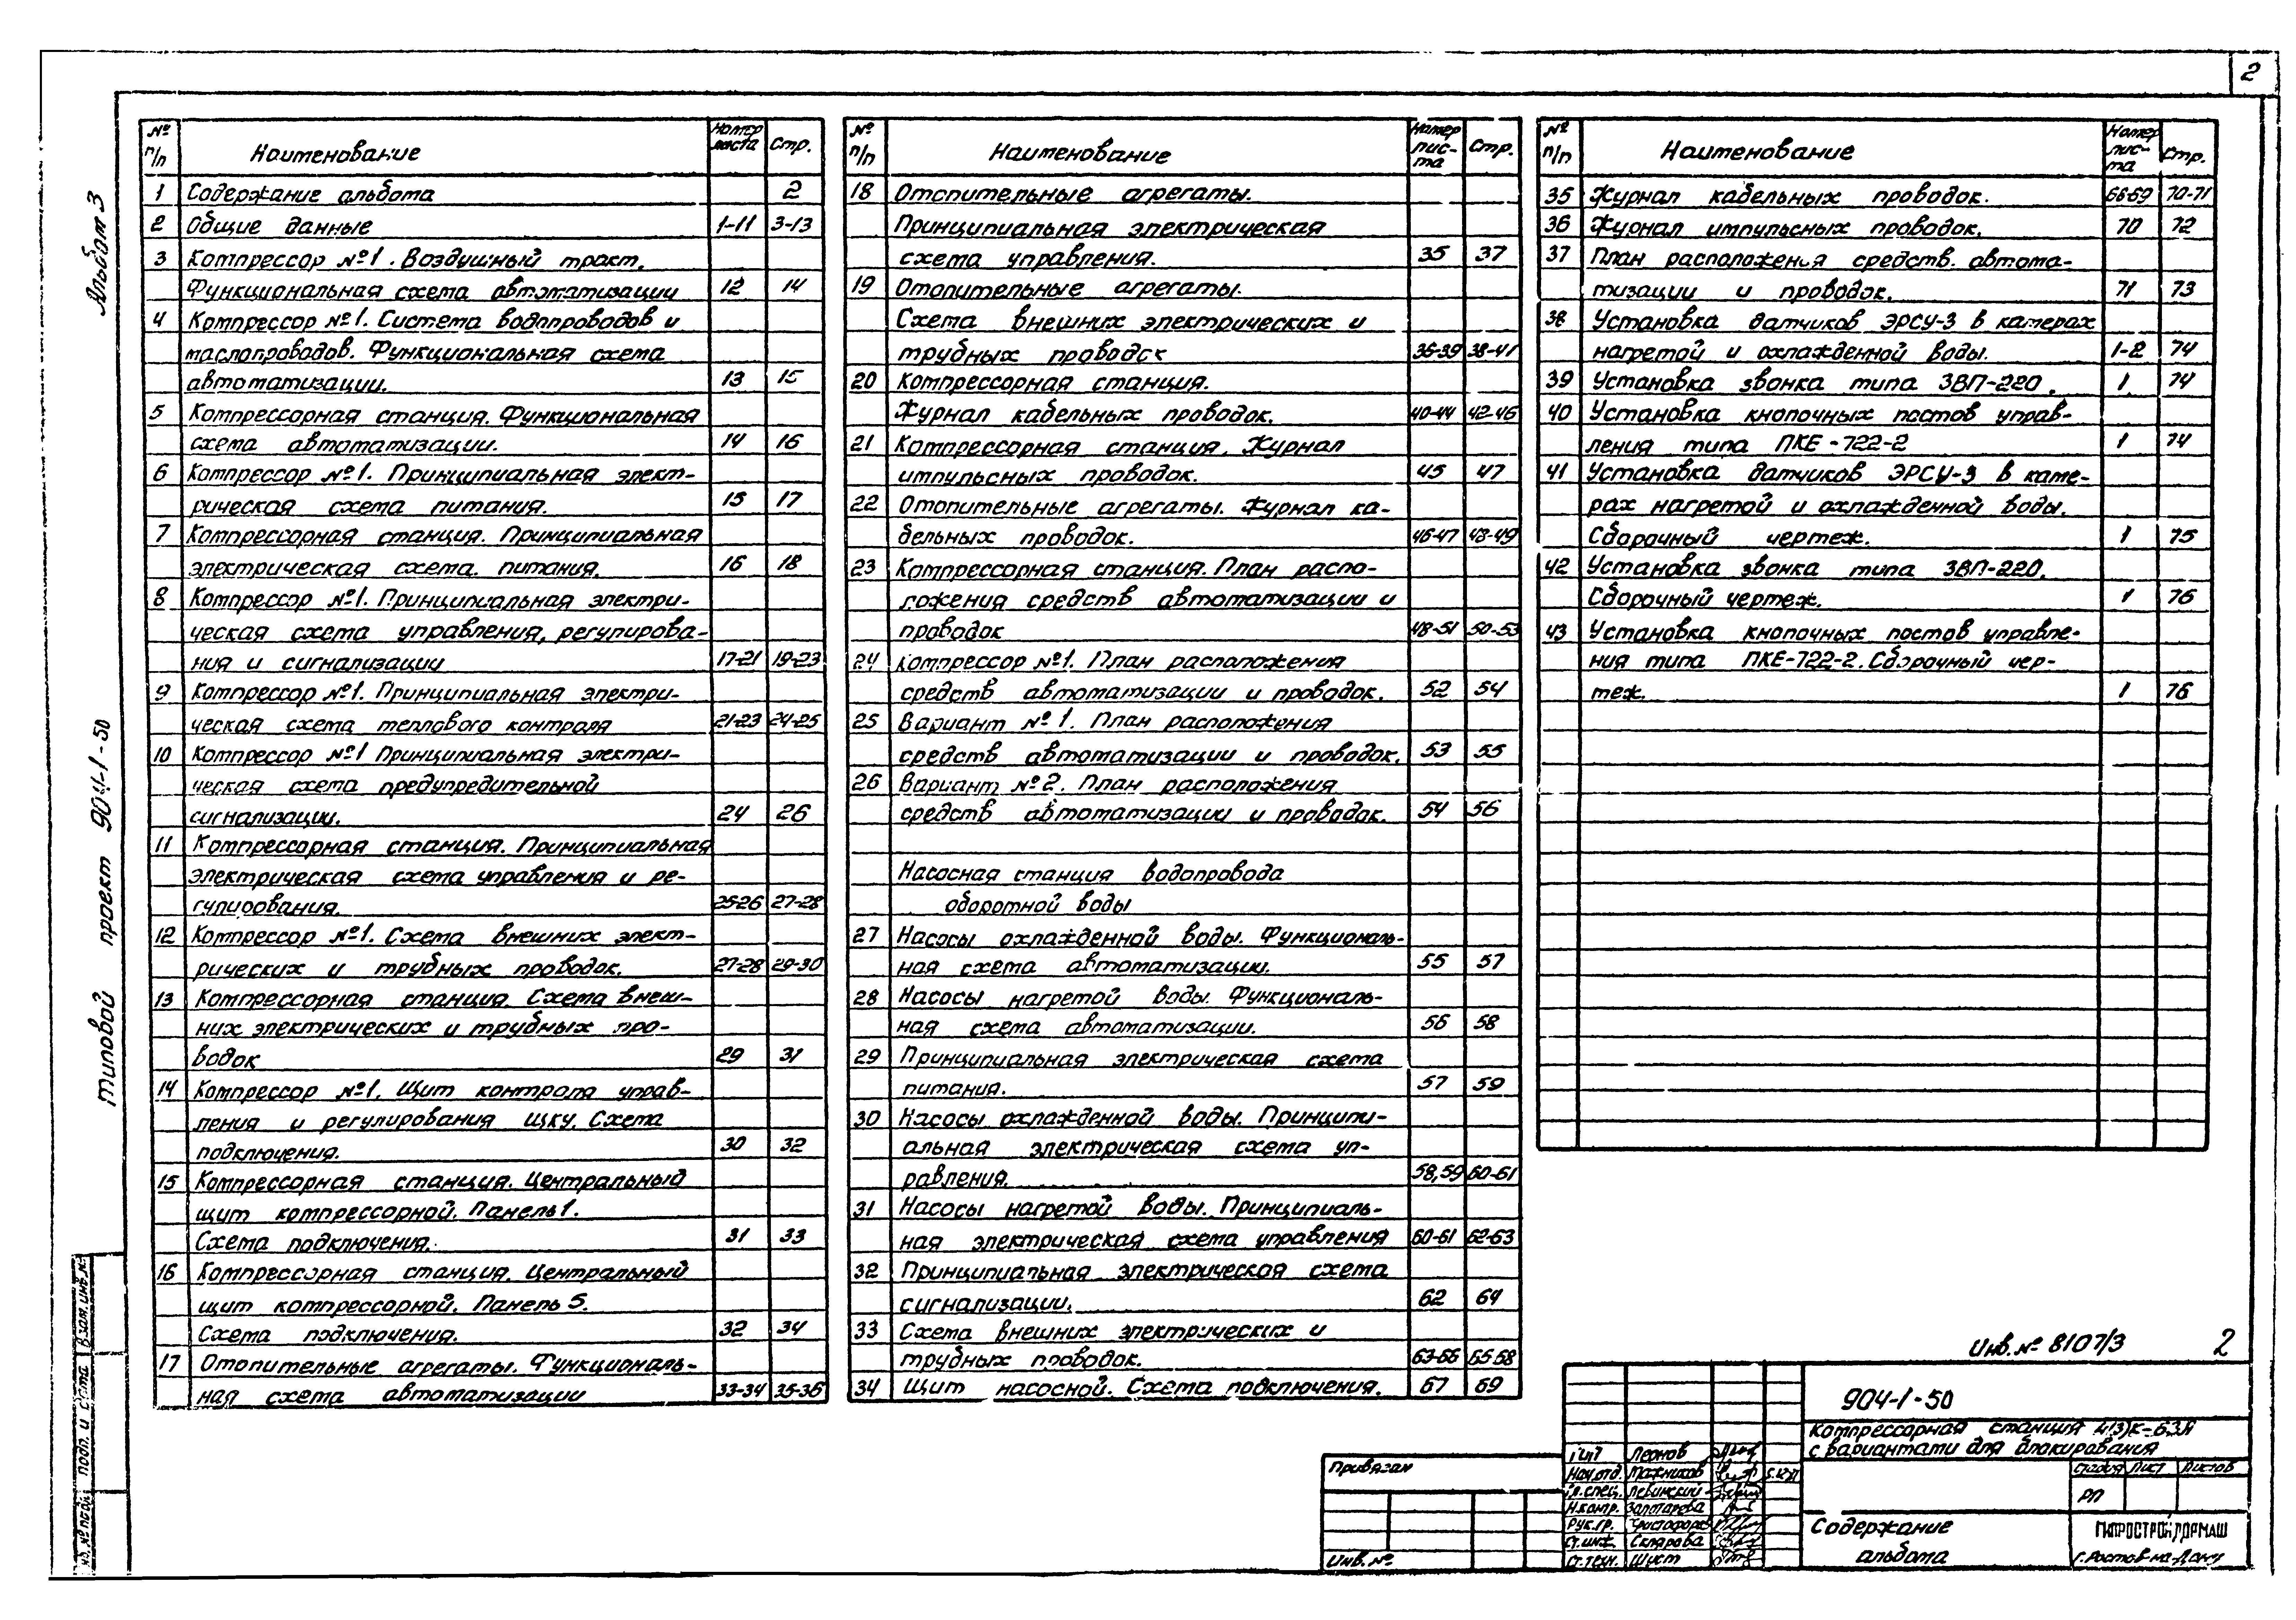 2
Альбом 3
Типовой проект 904-1-50
№ п/п Наименование Номер листа Стр.
1 Содержание альбома 2
2 Общие данные 1-11 3-13
3 Компрессор №1. Воздушный тракт.
Функциональная схема автоматизации 12 14
4 Компрессор №1. Система водопроводов и
маслопроводов. Функциональная схема
автоматизации. 13 15
5 Компрессорная станция. Функциональная
схема автоматизации. 14 16
6 Компрессор №1. Принципиальная элект-
рическая схема питания. 15 17
7 Компрессорная станция. Принципиальная
электрическая схема. питания. 16 18
8 Компрессор №1. Принципиальная электри-
ческая схема управления, регулирова-
ния и сигнализации 17-21 19-23
9 Компрессор №1. Принципиальная электри-
ческая схема теплового контроля 21-23 24-25
10 Компрессор №1 Принципиальная электри-
ческая схема предупредительной
сигнализации. 24 26
11 Компрессорная станция. Принципиальная
электрическая схема управления и ре-
гулирования. 25-26 27-28
12 Компрессор №1. Схема внешних элект-
рических и трубных проводок. 27-28 29-30
13 Компрессорная станция. Схема внеш-
них электрических и трубных про-
водок 29 31
14 Компрессор №1. Щит контроля управ-
ления и регулирования ЩКУ. Схема
подключения. 30 32
15 Компрессорная станция. Центральный
щит компрессорной. Панель 1.
Схема подключения. 31 33
16 Компрессорная станция. Центральный
щит компрессорной. Панель 5.
Схема подключения. 32 34
17 Отопительные агрегаты. Функциональ-
ная схема автоматизации 33-34 35-36
№ п/п Наименование Номер лис-та Стр.
18 Отопительные агрегаты.
Принципиальная электрическая
схема управления. 35 37
19 Отопительные агрегаты.
Схема внешних электрических и
трубных проводок 36-39 38-41
20 Компрессорная станция.
Журнал кабельных проводок. 40-44 42-46
21 Компрессорная станция. Журнал
импульсных проводок. 45 47
22 Отопительные агрегаты. Журнал ка-
бельных проводок. 46-47 48-49
23 Компрессорная станция. План распо-
ложения средств автоматизации и
проводок 48-51 50-53
24 Компрессор №1. План расположения
средств автоматизации и проводок. 52 54
25 Вариант №1. План расположения
средств автоматизации и проводок. 53 55
26 Вариант №2. План расположения
средств автоматизации и проводок. 54 56
Насосная станция водопровода
оборотной воды
27 Насосы охлажденной воды. Функциональ-
ная схема автоматизации. 55 57
28 Насосы нагретой воды. Функциональ-
ная схема автоматизации. 56 58
29 Принципиальная электрическая схема
питания. 57 59
30 Насосы охлажденной воды. Принципи-
альная электрическая схема уп-
равления. 58,59 60-61
31 Насосы нагретой воды. Принципиаль-
ная электрическая схема управления 60-61 62-63
32 Принципиальная электрическая схема
сигнализации. 62 64
33 Схема внешних электрических и
трубных проводок. 63-66 65-68
34 Щит насосной. Схема подключения. 67 69
№ п/п Наименование Номер лис-та Стр.
35 Журнал кабельных проводок. 68-69 70-71
36 Журнал импульсных проводок. 70 72
37 План расположения средств. автома-
тизации и проводок. 71 73
38 Установка датчиков ЭРСУ-3 в камерах
нагретой и охлажденной воды. 1-2 74
39 Установка звонка типа ЗВП-220. 1 74
40 Установка кнопочных постов управ-
ления типа ПКЕ-722-2 1 74
41 Установка датчиков ЭРСУ-3 в каме-
рах нагретой и охлажденной воды.
Сборочный чертеж. 1 75
42 Установка звонка типа ЗВП-220.
Сборочный чертеж. 1 76
43 Установка кнопочных постов управле-
ния типа ПКЕ-722-2. Сборочный чер-
теж. 1 76
Инв. № 8107/3 2
904-1-50
Компрессорная станция
с вариантами для блокирования
Привязан
Инв. №
ГИП Леонов
Нач. отд. Мажников
Гл. спец. Левинский
Н. контр. Золотарева
Рук. гр.
Ст. инж. Склярова
Ст. техн. Шуст
Стадия Лист Листов
РП
Содержание
альбома
ГИПРОСТРОЙДОРМАШ
г. Ростов-на-Дону
Взам. инв. №
Подп. и дата
Инв. № подл.